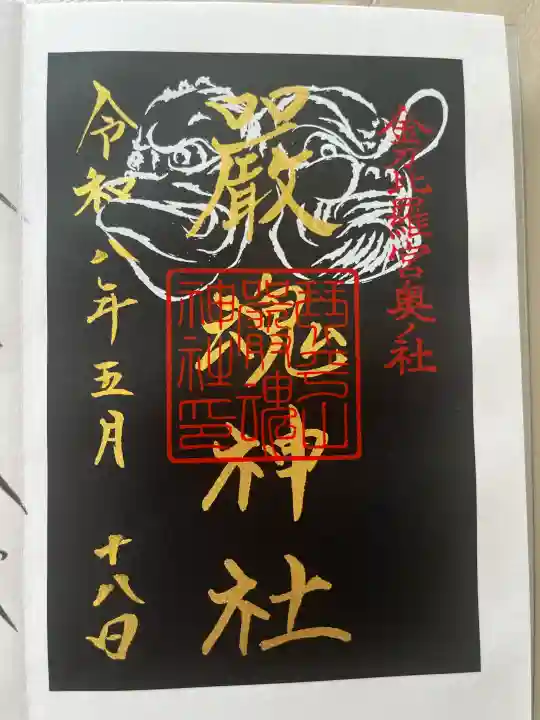 金刀比羅宮奥ノ社
嚴魂神社
琴平山
嚴魂
神社印
令和八年五月十八日